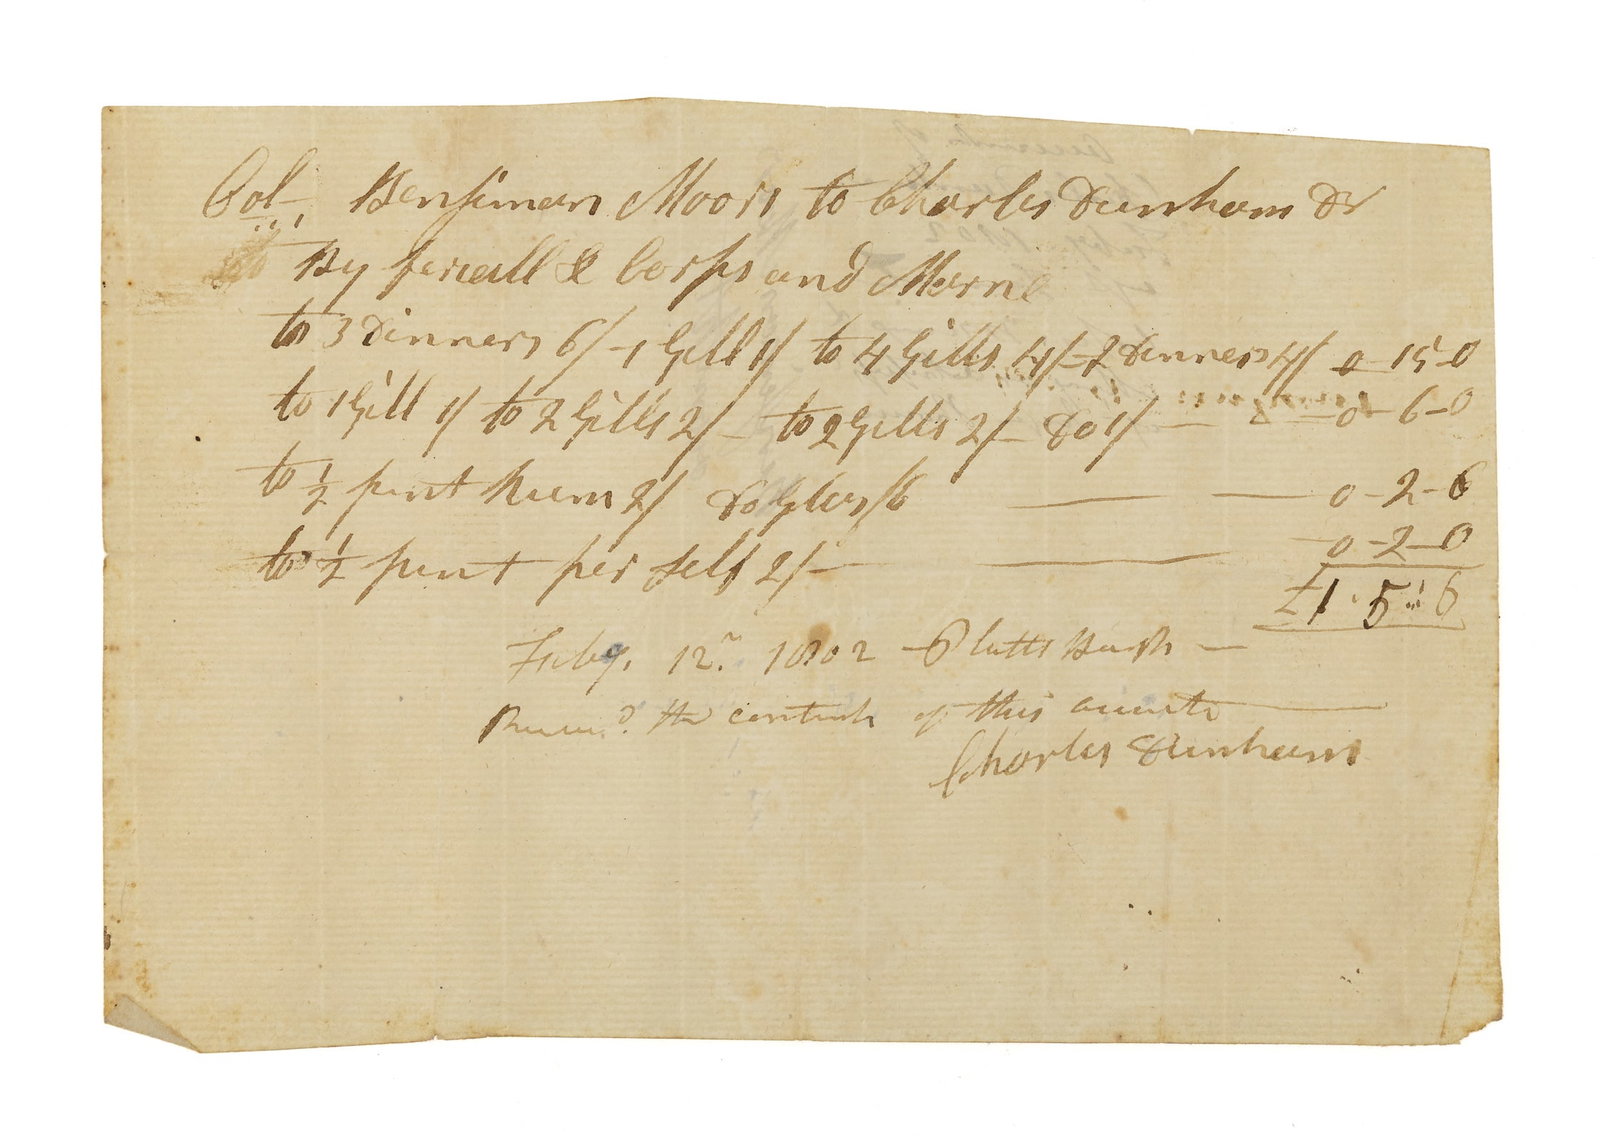 Col. Benjiman Moors to Charles Dunham Dr
By & Corps and
to 3 Dinners 6/ - 1 Gill 1/ to 4 Gills 4/ - 2 Dinners 4/ 0 - 15 - 0
to 1 Gill 1/ to 2 Gills 2/ - to 2 Gills 2/ - Do 1/ - 0 - 6 - 0
to ½ pint Rum 2/ Do /6 0 - 2 - 6
to ½ pint per self 2/ - 0 - 2 - 0
£1 . 5 " 6
Feby. 12. 1802 Platts Burgh -
the contents of this
Charles Dunham